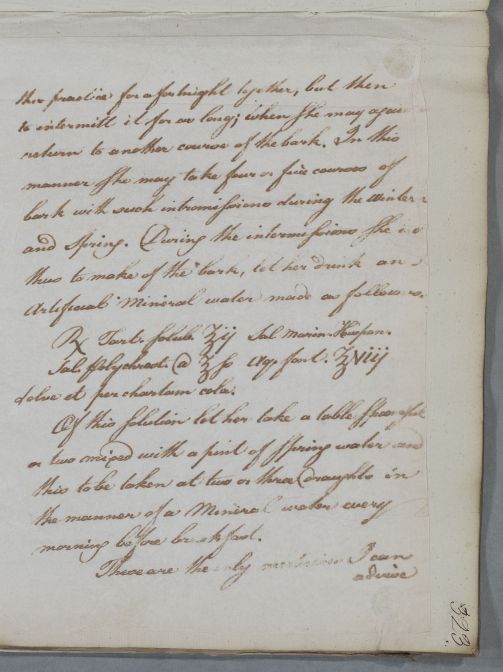 this practice for a fortnight together, but then
to intermitt it for as long; when she may again
return to another course of the bark. In this
manner she may take four or five courses of
bark with such intromissions during the winter
and Spring. During the intermissions she is
thus to make of the bark, let her drink an
Artificial Mineral water made as follows.
℞ Tart: solub. ʒij Sal marin. Hispan.
Sal. polychrest. a ʒ ss Aq. font. ʒviij
solve et per chartam cola.
Of this solution let her take a table spoonful
or two mixed with a pint of spring water and
this to be taken at two or three draughts in
the manner of a Mineral water every
morning before breakfast.
These are the only medicines I can
advise
323.